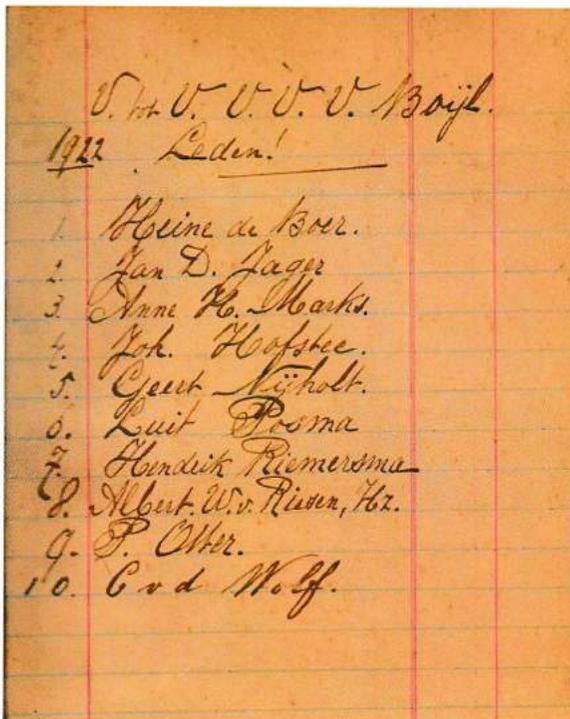 V. tot V. V. V. V. Boijl.
1922 Leden!
1. Heine de Boer.
2. Jan D. Jager
3. Anne H. Marks.
4. Joh. Hofstee.
5. Geert Nijholt.
6. Luit Posma
7. Hendrik Riemersma
8. Albert. W. v. Riesen, Hz.
9. P. Otter.
10. C v d Wolf.